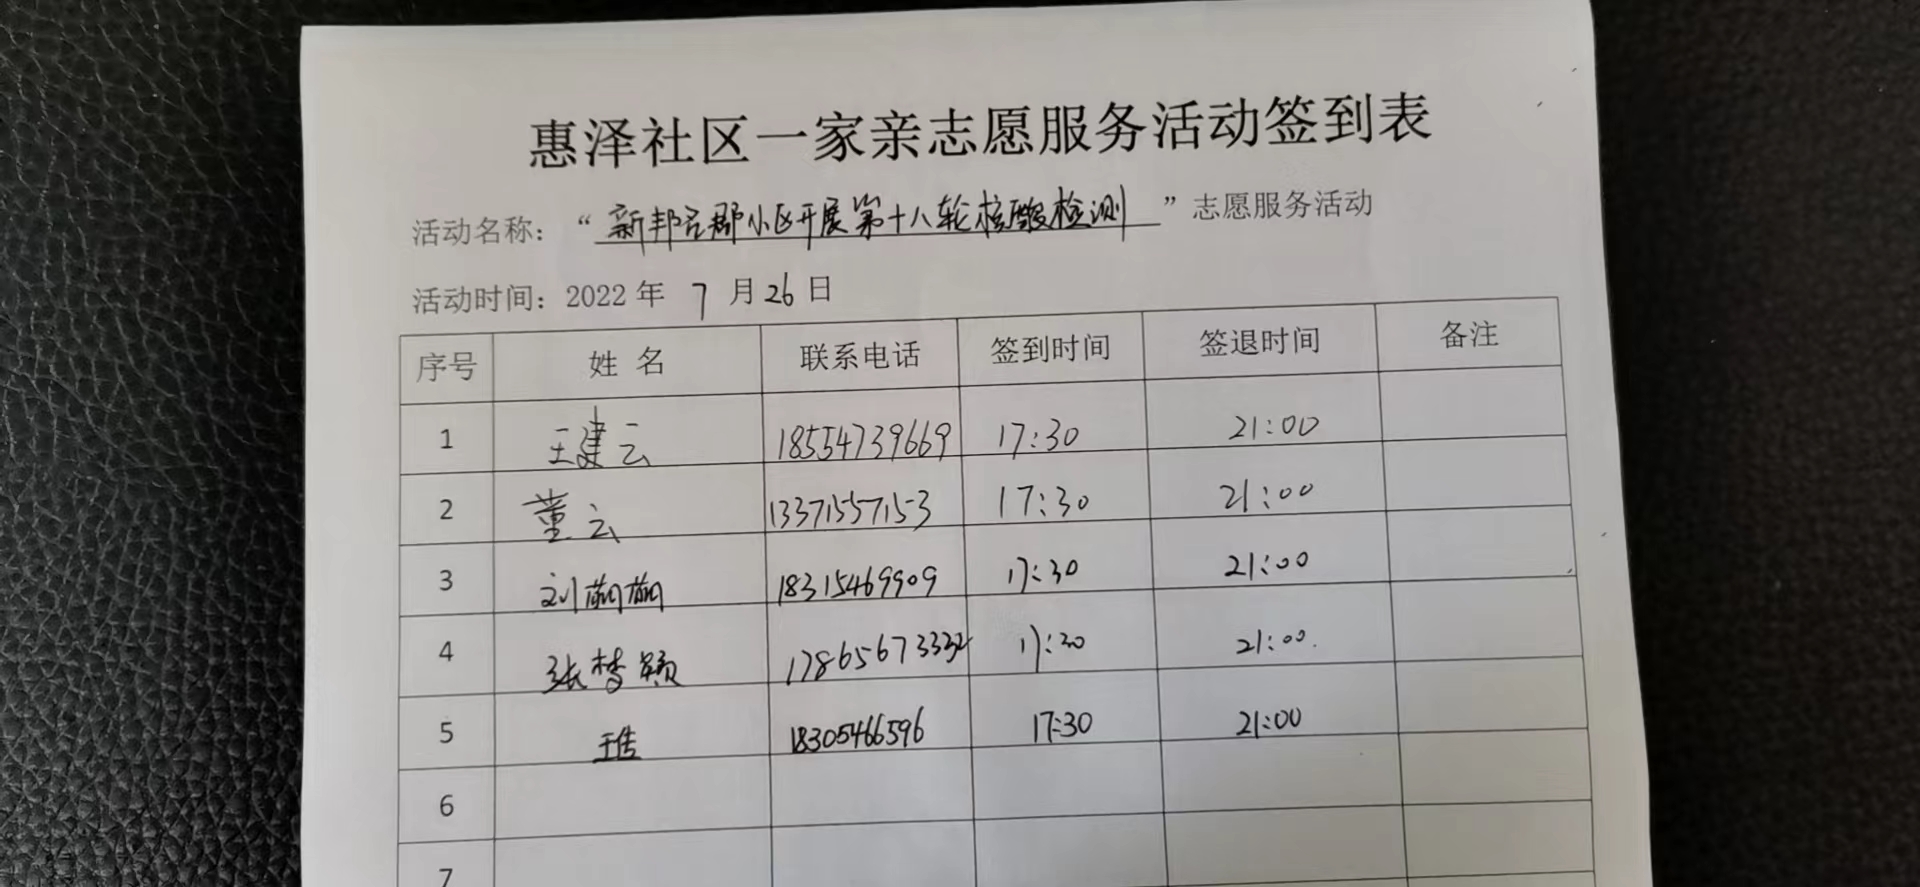 惠泽社区一家亲志愿服务活动签到表
活动名称：“新邦名郡小区开展第十八轮核酸检测”志愿服务活动
活动时间：2022 年 7 月 26 日
序号 姓 名 联系电话 签到时间 签退时间 备注
1 王建云 18554739669 17:30 21:00
2 董云 13371557153 17:30 21:00
3 刘萌萌 18315469909 17:30 21:00
4 张梦颖 17:30 21:00
5 18305466596 17:30 21:00
6
7